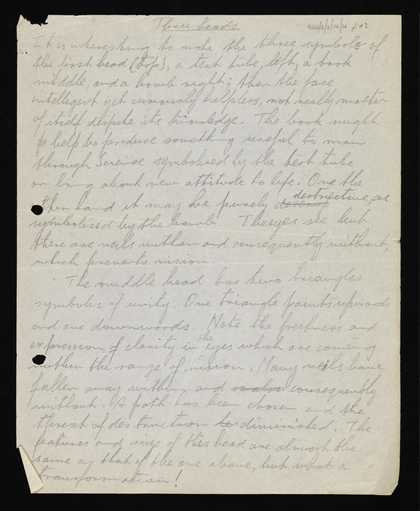 Three heads
It is interesting to note the three symbols of
the first head (top), a test tube, left, a book
middle, and a bomb right; then the face
intelligent yet curiously helpless, not really master
of itself despite its knowledge. The book might
help to produce something useful to man
through Science symbolised by the test tube
or bring about new attitude to life. On the
other hand it may be purely destructive, as
symbolised by the bomb. The eyes see but
there are veils within and consequently without,
which prevents vision.
The middle head has two triangles
symbols of unity. One triangle points upwards
and one downwards. Note the freshness and
expression of clarity in the eyes which are coming
within the range of vision. Many veils have
fallen away within and consequently
without. A path has been chosen and the
threat of destruction diminished. The
features and size of this head are almost the
same as that of the one above, but what a
transformation!